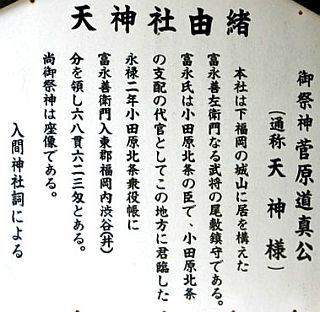 天神社由緒
御祭神 菅原道真公
(通称 天神様)
本社は下福岡の城山に居を構えた
富永善左衛門なる武将の屋敷鎮守である。
富永氏は小田原北条の臣で、小田原北条
の支配の代官としてこの地方に君臨した
永禄二年小田原北条衆役帳に
富永善衛門入東郡福岡内渋谷(井)
分を領し六八貫六二三匁とある。
尚御祭神は座像である。
入間神社詞による